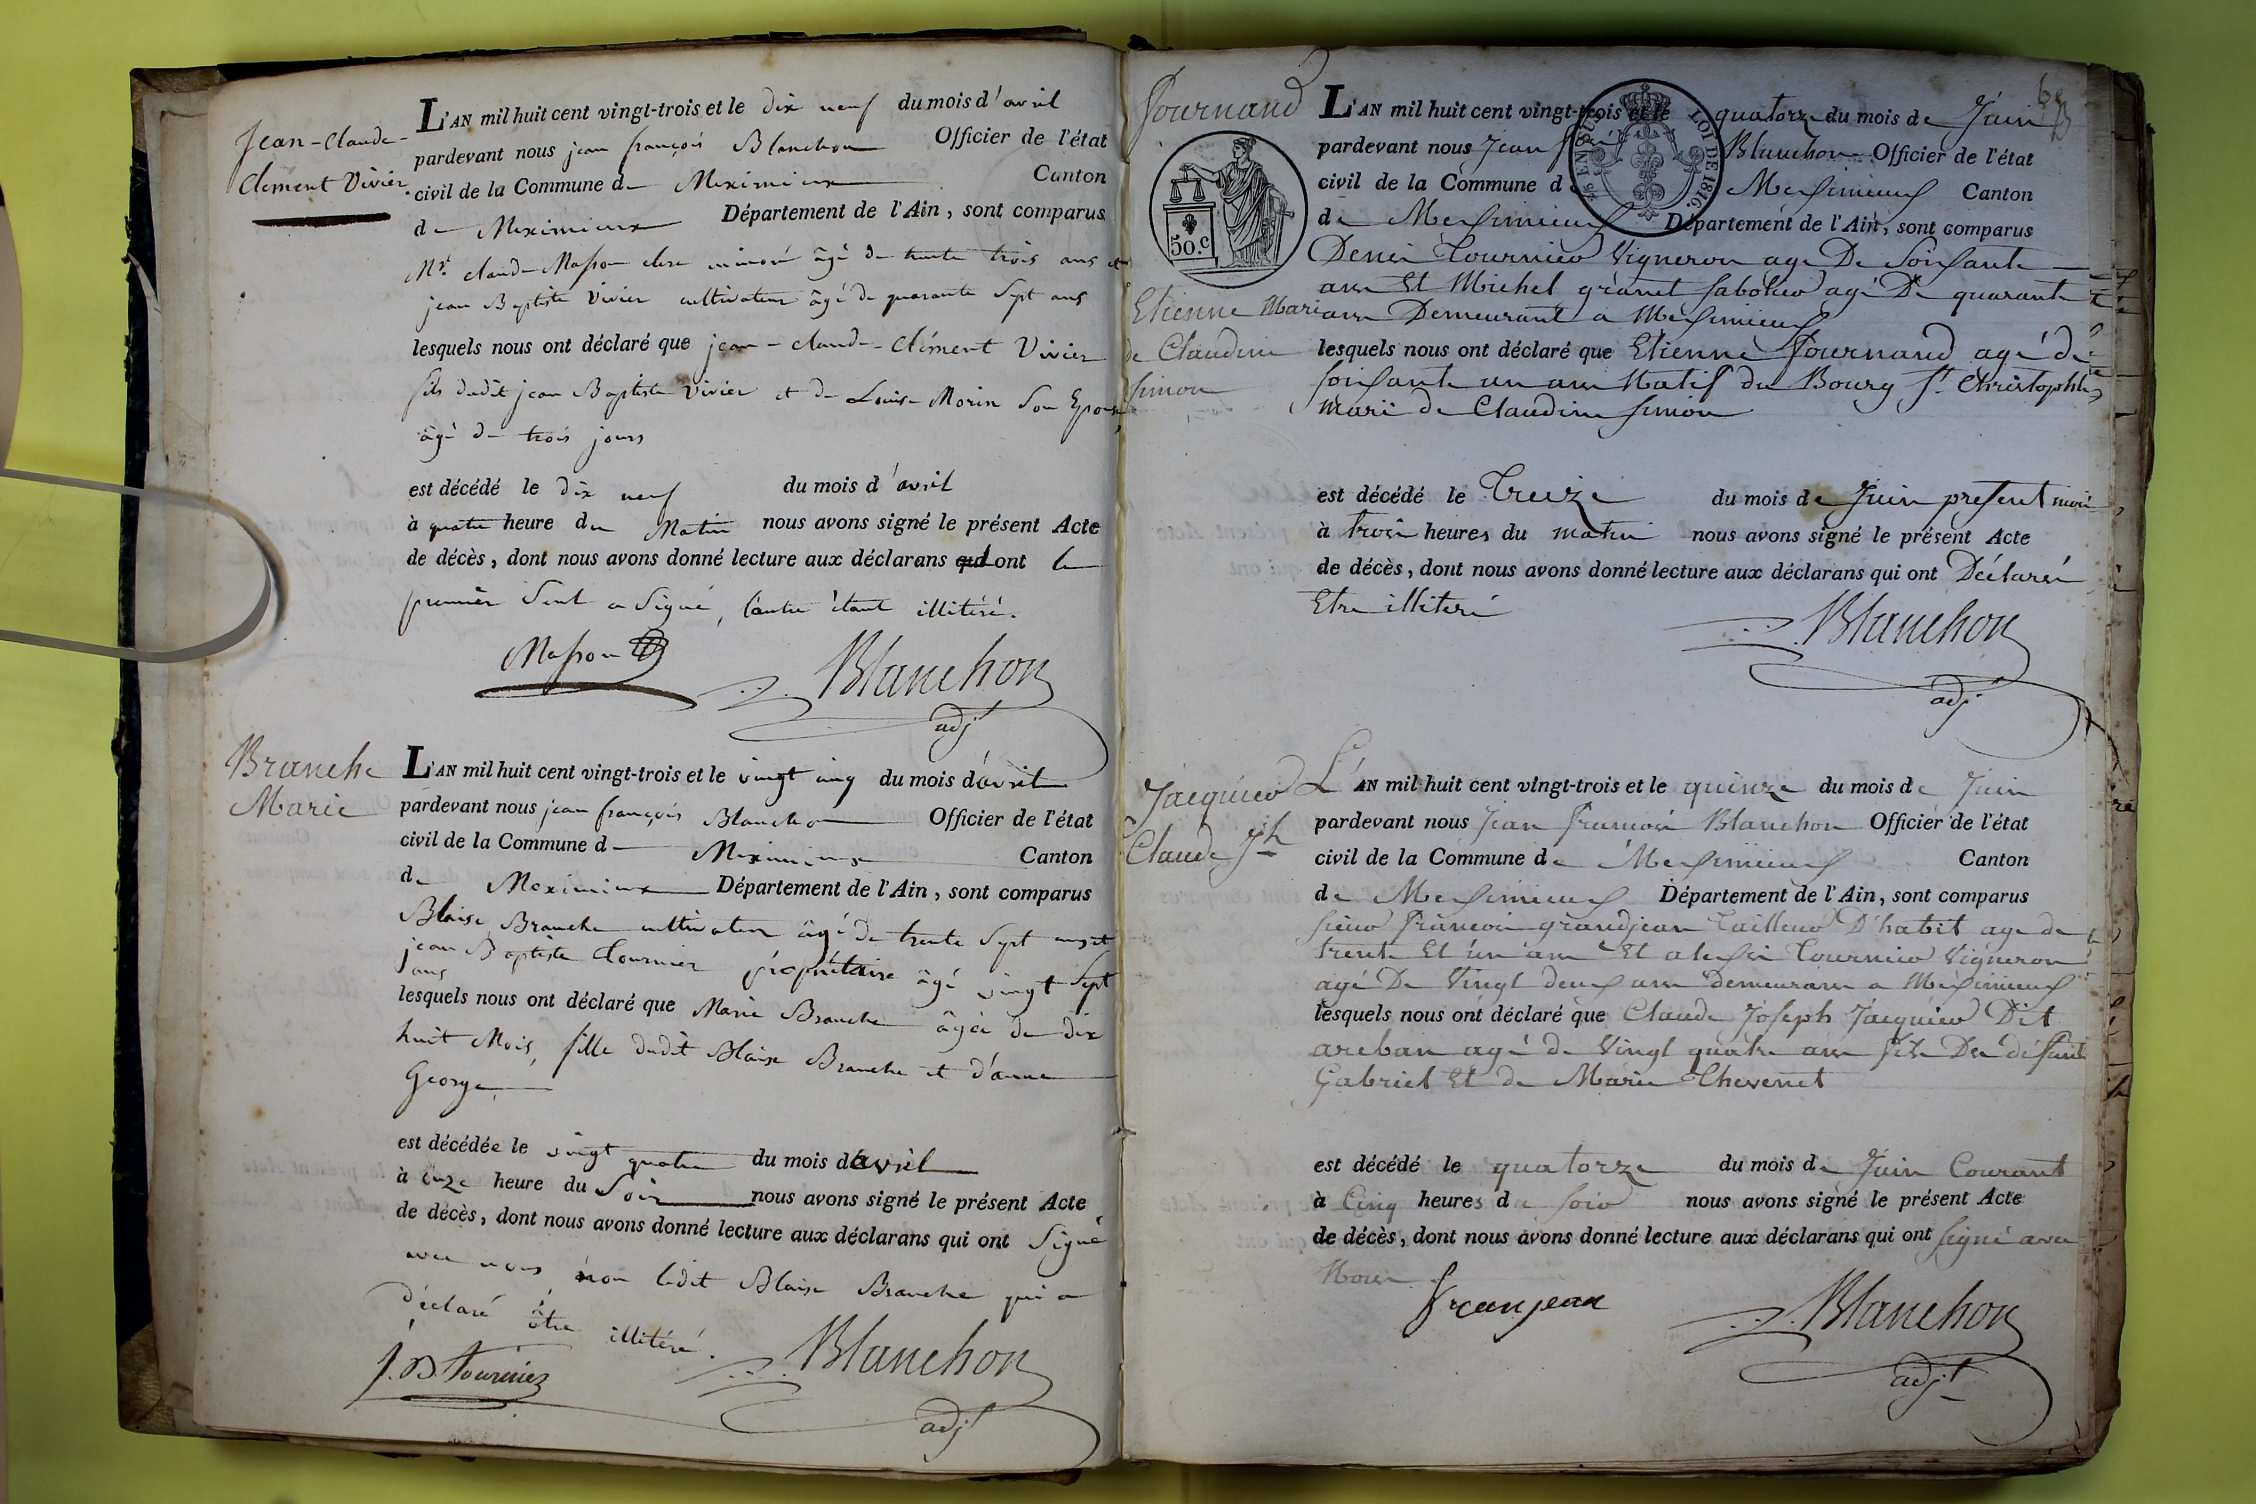 Jean-Claude-
Clement Vivier.
L'AN mil huit cent vingt-trois et le dix neuf du mois d'avril
pardevant nous jean françois Blanchon Officier de l'état
civil de la Commune de Meximieux Canton
de Meximieux Département de l'Ain, sont comparus
Mr. claude Masson clerc minoré âgé de trente trois ans et
jean Baptiste Vivier cultivateur âgé de quarante Sept ans
lesquels nous ont déclaré que jean-claude-Clément Vivier
fils dudit jean Baptiste Vivier et de Louise Morin Son Epouse
âgé de trois jours
est décédé le dix neuf du mois d'avril
à quatre heure du Matin nous avons signé le présent Acte
de décès, dont nous avons donné lecture aux déclarans qui ont le
premier Seul a Signé, l'autre étant illitéré.
Masson
Blanchon
adjt
Branche
Marie
L'AN mil huit cent vingt-trois et le vingt cinq du mois d'avril
pardevant nous jean françois Blanchon Officier de l'état
civil de la Commune de Meximieux Canton
de Meximieux Département de l'Ain, sont comparus
Blaise Branche cultivateur âgé de trente Sept ans et
jean Baptiste Tournier propriétaire âgé vingt Sept
ans
lesquels nous ont déclaré que Marie Branche âgée de dix
huit Mois, fille dudit Blaise Branche et d'anne
George
est décédée le vingt quatre du mois d'avril
à onze heure du Soir nous avons signé le présent Acte
de décès, dont nous avons donné lecture aux déclarans qui ont Signé
avec nous, non ledit Blaise Branche qui a
déclaré être illitéré.
J. B. Tournier
Blanchon
adjt
Journand
50.c
LOI DE 1816.
Etienne Mari
de Claudine
Simon
L'AN mil huit cent vingt-trois et le quatorze du mois de Juin
pardevant nous Jean Blanchon Officier de l'état
civil de la Commune de Messimieux Canton
de Messimieux Département de l'Ain, sont comparus
Denis Tournier Vigneron age De Soissante
ans Et Michel granet Sabotier agé De quarante
ans Demeurant a Messimieux
lesquels nous ont déclaré que Etienne Journand agé de
soissante un ans Natif du Bourg St. Christophle
mari de Claudine Simon
est décédé le Treize du mois de Juin present mois
à trois heures du matin nous avons signé le présent Acte
de décès, dont nous avons donné lecture aux déclarans qui ont Déclaré
Etre illiteré
Blanchon
adjt
Jacquier
Claude Jh
L'AN mil huit cent vingt-trois et le quinze du mois de Juin
pardevant nous Jean francois Blanchon Officier de l'état
civil de la Commune de Messimieux Canton
de Messimieux Département de l'Ain, sont comparus
sieur francois grandjean Tailleur D'habit age de
trente Et un ans Et alexis Tournier Vigneron
agé De Vingt deux ans demeurans a Messimieux
lesquels nous ont déclaré que Claude Joseph Jacquier Dit
areban agé de Vingt quatre ans fils De défunt
Gabriel Et de Marie Chevenet
est décédé le quatorze du mois de Juin Courant
à Cinq heures du soir nous avons signé le présent Acte
de décès, dont nous avons donné lecture aux déclarans qui ont signé avec
Nous
Granjean
Blanchon
adjt